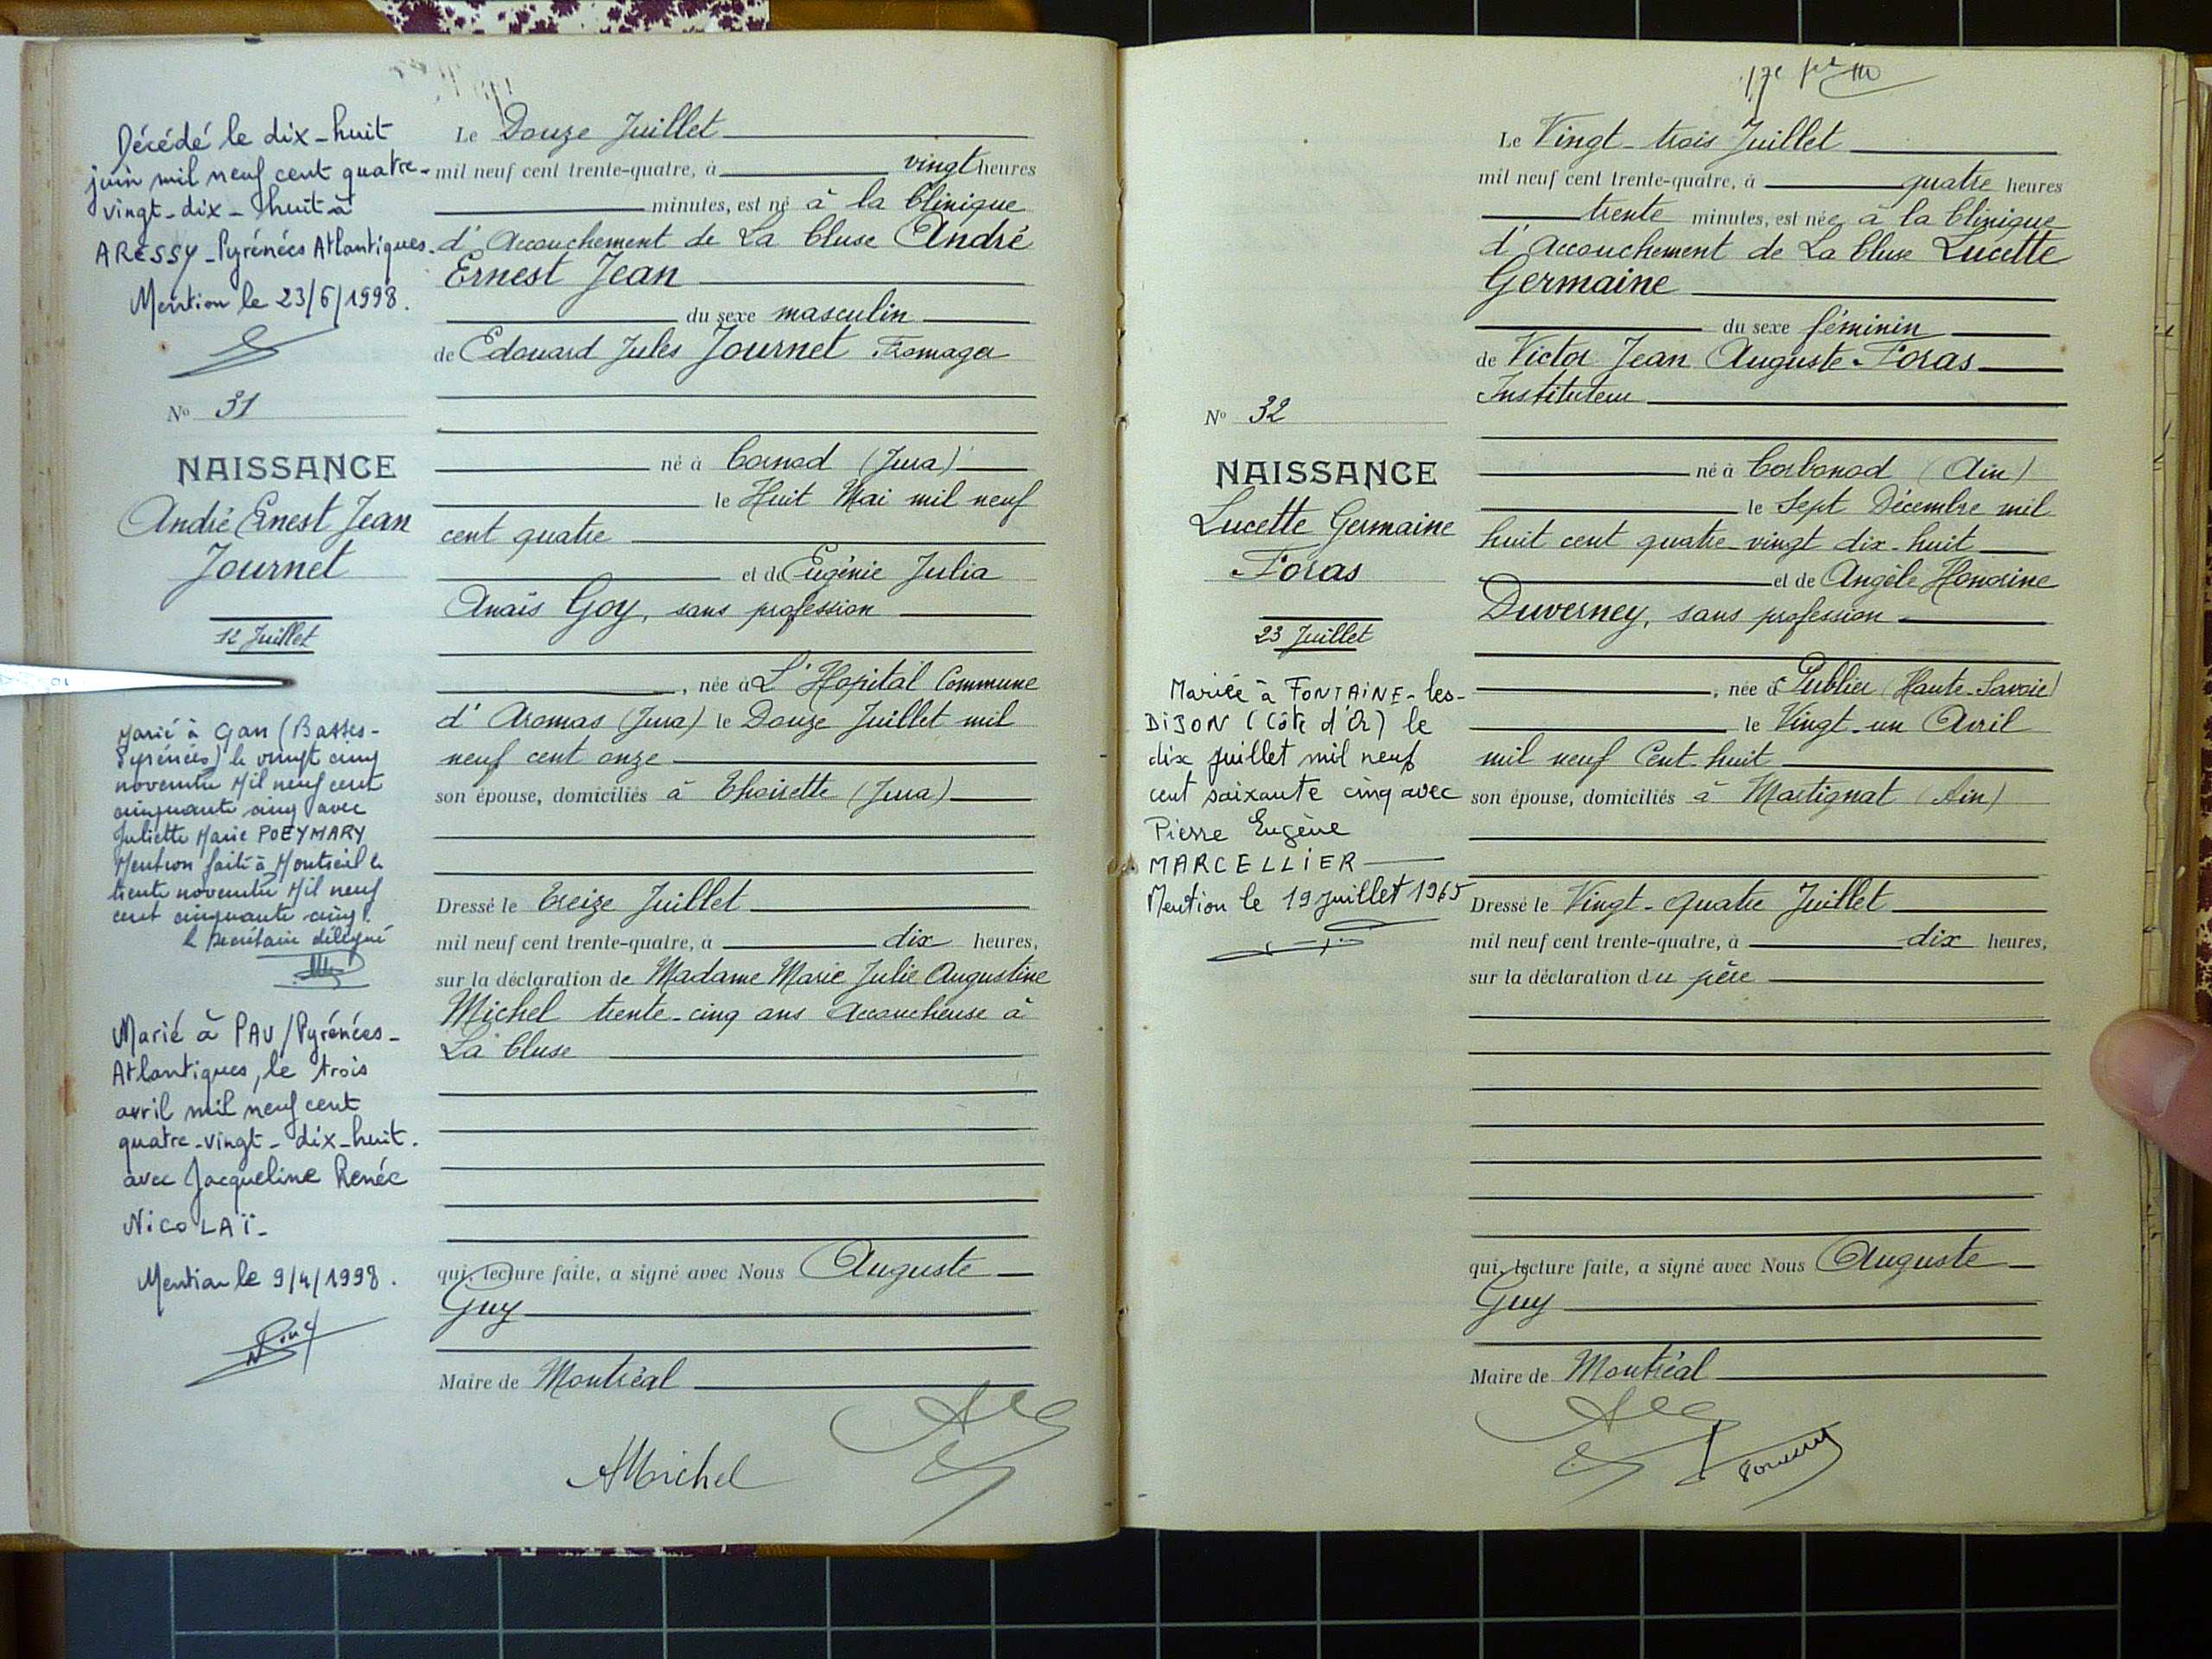 Décédé le dix-huit
juin mil neuf cent quatre-
vingt-dix-huit à
ARESSY-Pyrénées Atlantiques.
Mention le 23/6/1998.
N° 31
NAISSANCE
André Ernest Jean
Journet
12 Juillet
Marié à Gan (Basses-
Pyrénées) le vingt cinq
novembre Mil neuf cent
cinquante cinq avec
Juliette Marie POEYMARY
Mention faite à Montréal le
trente novembre Mil neuf
cent cinquante cinq.
le secrétaire délégué
Marié à PAU/Pyrénées-
Atlantiques, le trois
avril mil neuf cent
quatre-vingt-dix-huit.
avec Jacqueline Renée
NICOLAÏ-
Mention le 9/4/1998.
Le Douze Juillet
mil neuf cent trente-quatre, à vingt heures
minutes, est né à la Clinique
d'Accouchement de La Cluse André
Ernest Jean
du sexe masculin
de Edouard Jules Journet Fromager
né à Cornod (Jura)
le Huit Mai mil neuf
cent quatre
et de Eugénie Julia
Anaïs Goy, sans profession
, née à L'Hopital Commune
d'Aromas (Jura) le Douze Juillet mil
neuf cent onze
son épouse, domiciliés à Thoirette (Jura)
Dressé le Treize Juillet
mil neuf cent trente-quatre, à dix heures,
sur la déclaration de Madame Marie Julie Augustine
Michel trente-cinq ans Accoucheuse à
La Cluse
qui, lecture faite, a signé avec Nous Auguste
Guy
Maire de Montréal
AMichel
Le Vingt-trois Juillet
mil neuf cent trente-quatre, à quatre heures
trente minutes, est née à la Clinique
d'Accouchement de La Cluse Lucette
Germaine
du sexe féminin
de Victor Jean Auguste Foras
Instituteur
né à Corbonod (Ain)
le Sept Décembre mil
huit cent quatre-vingt dix-huit
et de Angèle Honorine
Duverney, sans profession
, née à Publier (Haute-Savoie)
le Vingt-un Avril
mil neuf Cent huit
son épouse, domiciliés à Martignat (Ain)
Dressé le Vingt-quatre Juillet
mil neuf cent trente-quatre, à dix heures,
sur la déclaration du père
qui, lecture faite, a signé avec Nous Auguste
Guy
Maire de Montréal
N° 32
NAISSANCE
Lucette Germaine
Foras
23 Juillet
Mariée à FONTAINE-les-
DIJON (Côte d'Or) le
dix juillet mil neuf
cent soixante cinq avec
Pierre Eugène
MARCELLIER
Mention le 19 juillet 1965